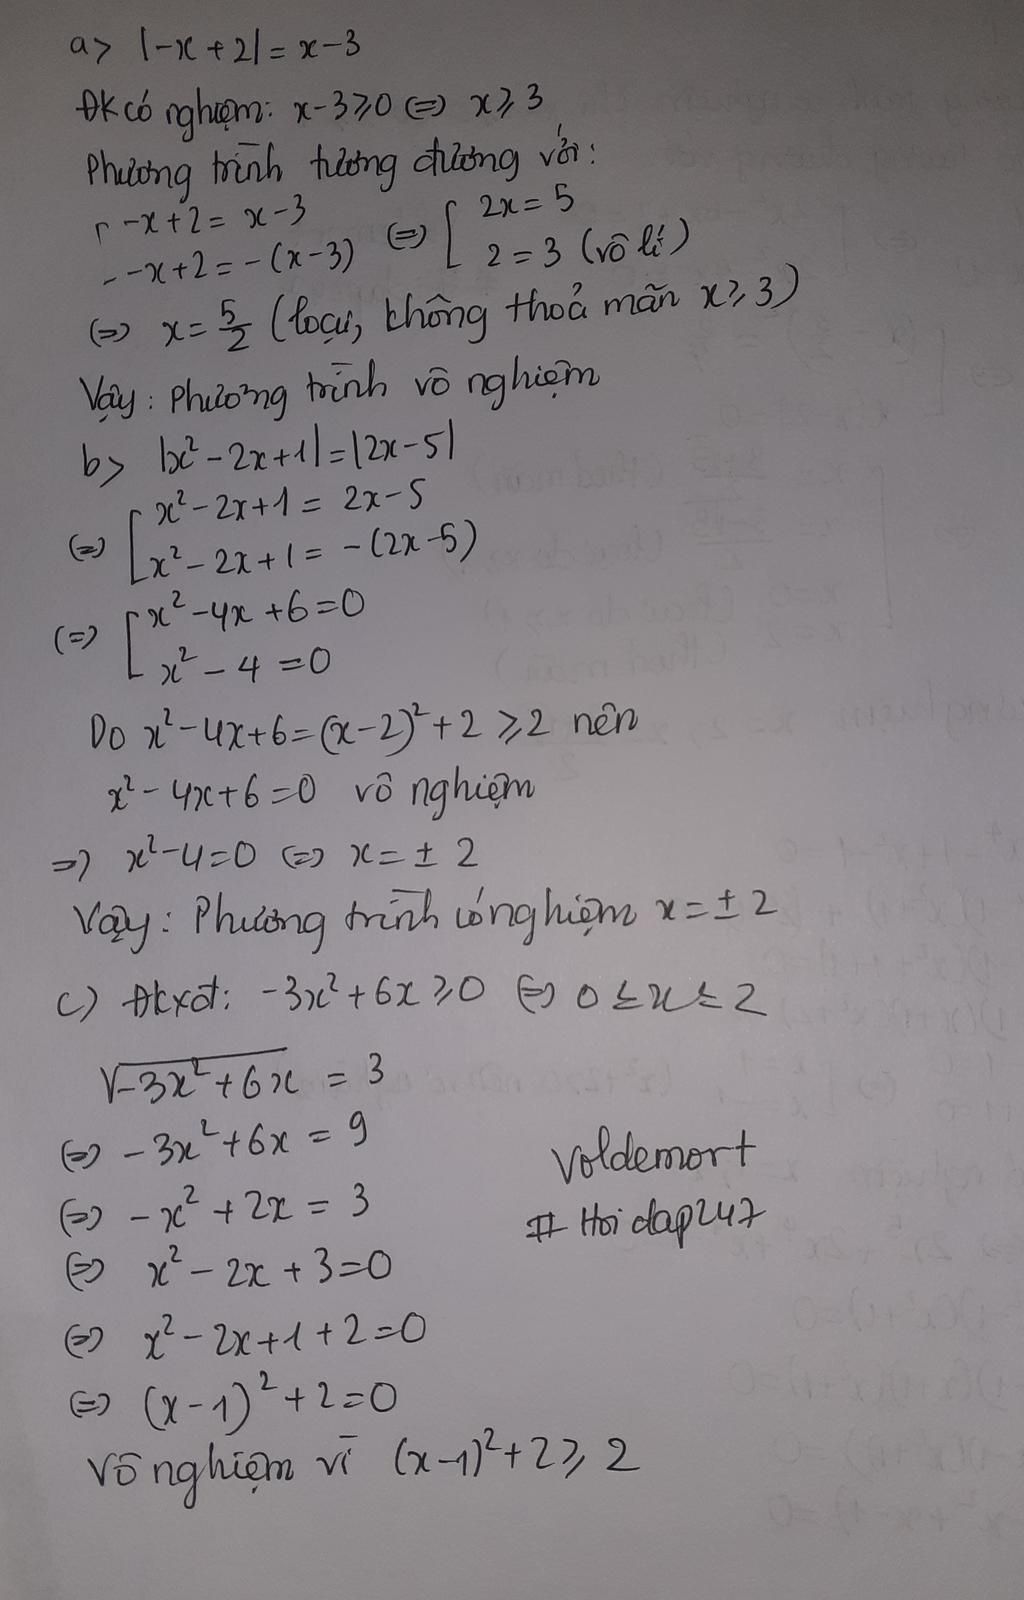 a> |-x+2| = x-3
ĐK có nghiệm: x-3≥0 (=) x≥3
Phương trình tương đương với:
[ -x+2 = x-3
-x+2 = -(x-3) (=) [ 2x = 5
2 = 3 (vô lí)
(=) x = 5/2 (loại, không thoả mãn x≥3)
Vậy: Phương trình vô nghiệm
b> |x²-2x+1| = |2x-5|
(=) [ x²-2x+1 = 2x-5
x²-2x+1 = -(2x-5)
(=) [ x²-4x+6=0
x²-4=0
Do x²-4x+6=(x-2)²+2≥2 nên
x²-4x+6=0 vô nghiệm
=) x²-4=0 (=) x=±2
Vậy: Phương trình có nghiệm x=±2
c) Đkxđ: -3x²+6x≥0 (=) 0≤x≤2
√-3x²+6x = 3
(=) -3x²+6x = 9
(=) -x²+2x = 3
(=) x²-2x+3=0
(=) x²-2x+1+2=0
(=) (x-1)²+2=0
Vô nghiệm vì (x-1)²+2≥2
Voldemort
# Hoidap247